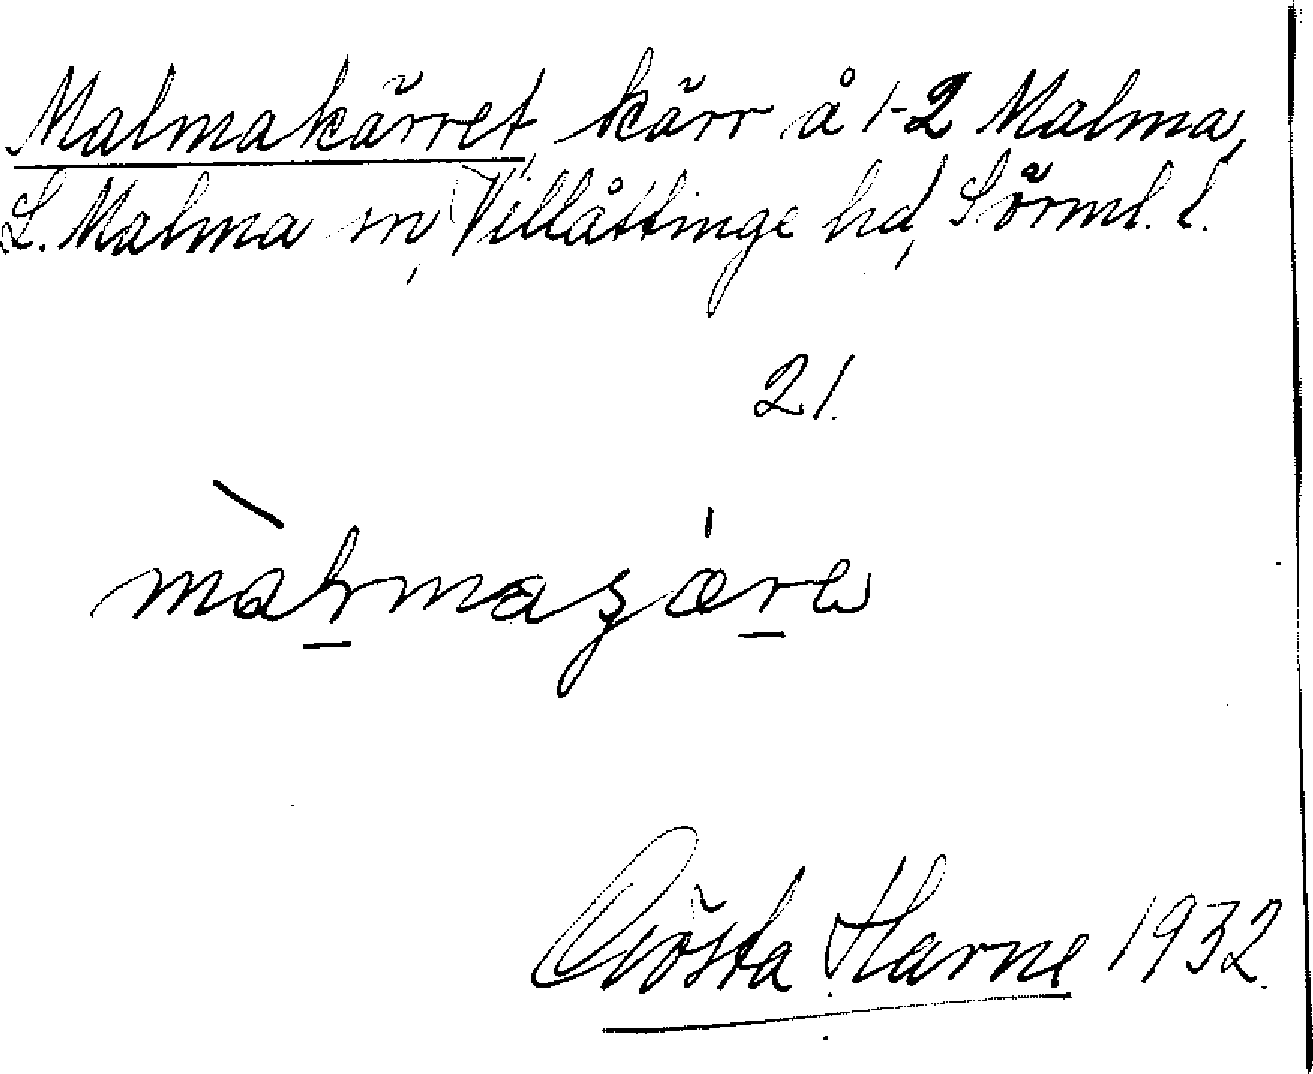 Malmakärret, kärr å 1-2 Malma,
L. Malma sn, Villåttinge hd, Sörml. l.
21.
Gösta Harne 1932.